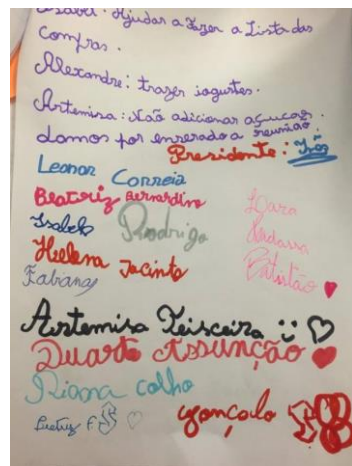 Isabel: Ajudar a fazer a Lista das
compras.
Alexandre: trazer iogurtes.
Artemisa: Não adicionar açucar.
damos por encerado a reunião.
Presidente:
Leonor Correia
Beatriz Bernardino
Isabela
Rodrigo
Lara
Andassa
Batistão
Helena Jacinto
Fabiana
Artemisa Teixeira
Duarte Assunção
Diana Colho
Beatriz F
Gonçalo